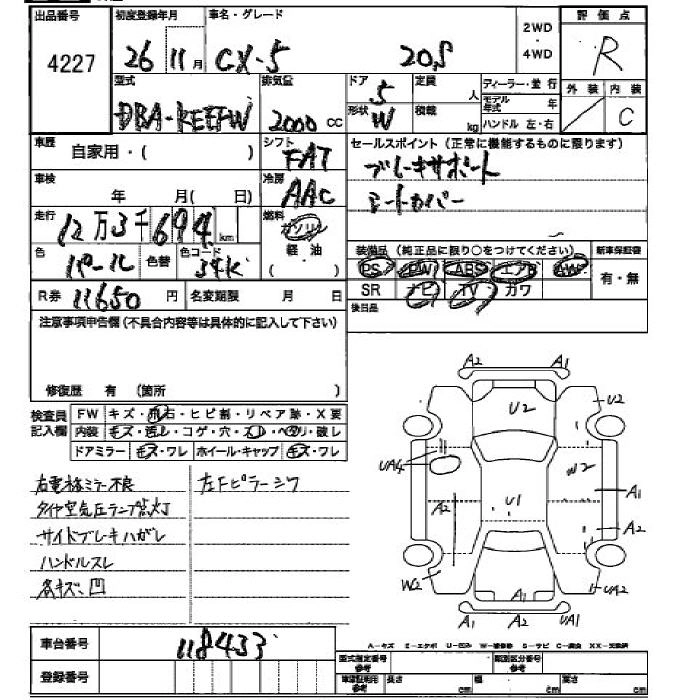 出品番号 初度登録年月 車名・グレード 2WD・4WD 評価点
4227 26 11月 CX-5 20S R
型式 排気量 ドア 5 定員 人 ディーラー・並行 外装 内装
DBA-KEEFW 2000cc 形状 W 積載 kg モデル年式 年 ハンドル 左・右 C
車歴 自家用・( ) シフト FAT セールスポイント(正常に機能するものに限ります)
ブレーキサポート
車検 年 月( 日) 冷房 AAC シートカバー
走行 12万3千694km 燃料 ガソリン 軽油 ( )
色 パール 色替 色コード 34K 装備品(純正品に限り○をつけてください) 新車保証書
PS PW ABS エアB AW 有・無
R券 11650円 名変期限 月 日 SR ナビ TV ガワ
後日品
注意事項申告欄(不具合内容等は具体的に記入して下さい)
修復歴 有 (箇所 )
検査員記入欄 FW キズ・飛石・ヒビ割・リペア跡・X要
内装 キズ・汚レ・コゲ・穴・スレ・ベタリ・破レ
ドアミラー キズ・ワレ ホイール・キャップ キズ・ワレ
右電格ミラー不良 左Fピラーシワ
タイヤ空気圧ランプ点灯
サイドブレーキハガレ
ハンドルスレ
各キズ凹
A2 A1
U2 U2
UA4 W2
A1
A2 U1
A2
W2 A1 UA2
A1 A2 UA1
車台番号 118433
A-キズ E-エクボ U-凹み W-補修跡 S-サビ C-腐食 XX-交換済
登録番号 型式指定番号 参考 類別区分番号 参考
車庫証明用 参考 長さ cm 幅 cm 高さ cm